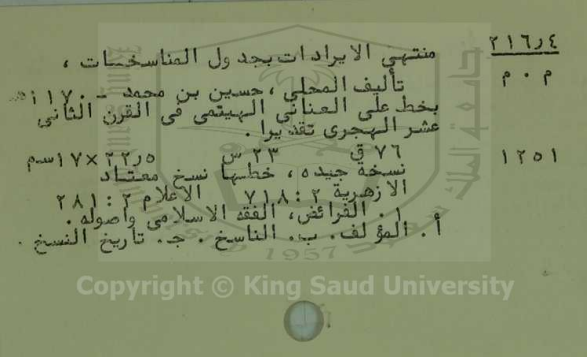 ٢١٦٫٤
م ٠ م
منتهى الايرادات بجدول المناسخات ،
تأليف المحلي ، حسين بن محمد - ١١٧٠هـ
بخط علي العناني الهيتمي في القرن الثاني
عشر الهجري تقديرا .
١٢٥١
٧٦ ق ٢٣ س ٢٢٫٥×١٧سم
نسخة جيده ، خطها نسخ معتاد
الازهرية ٢ : ٧١٨ الاعلام ٢ : ٢٨١
١. الفرائض، الفقه الاسلامي واصوله .
أ. المؤلف. ب. الناسخ . جـ. تاريخ النسخ .
1957
Copyright © King Saud University